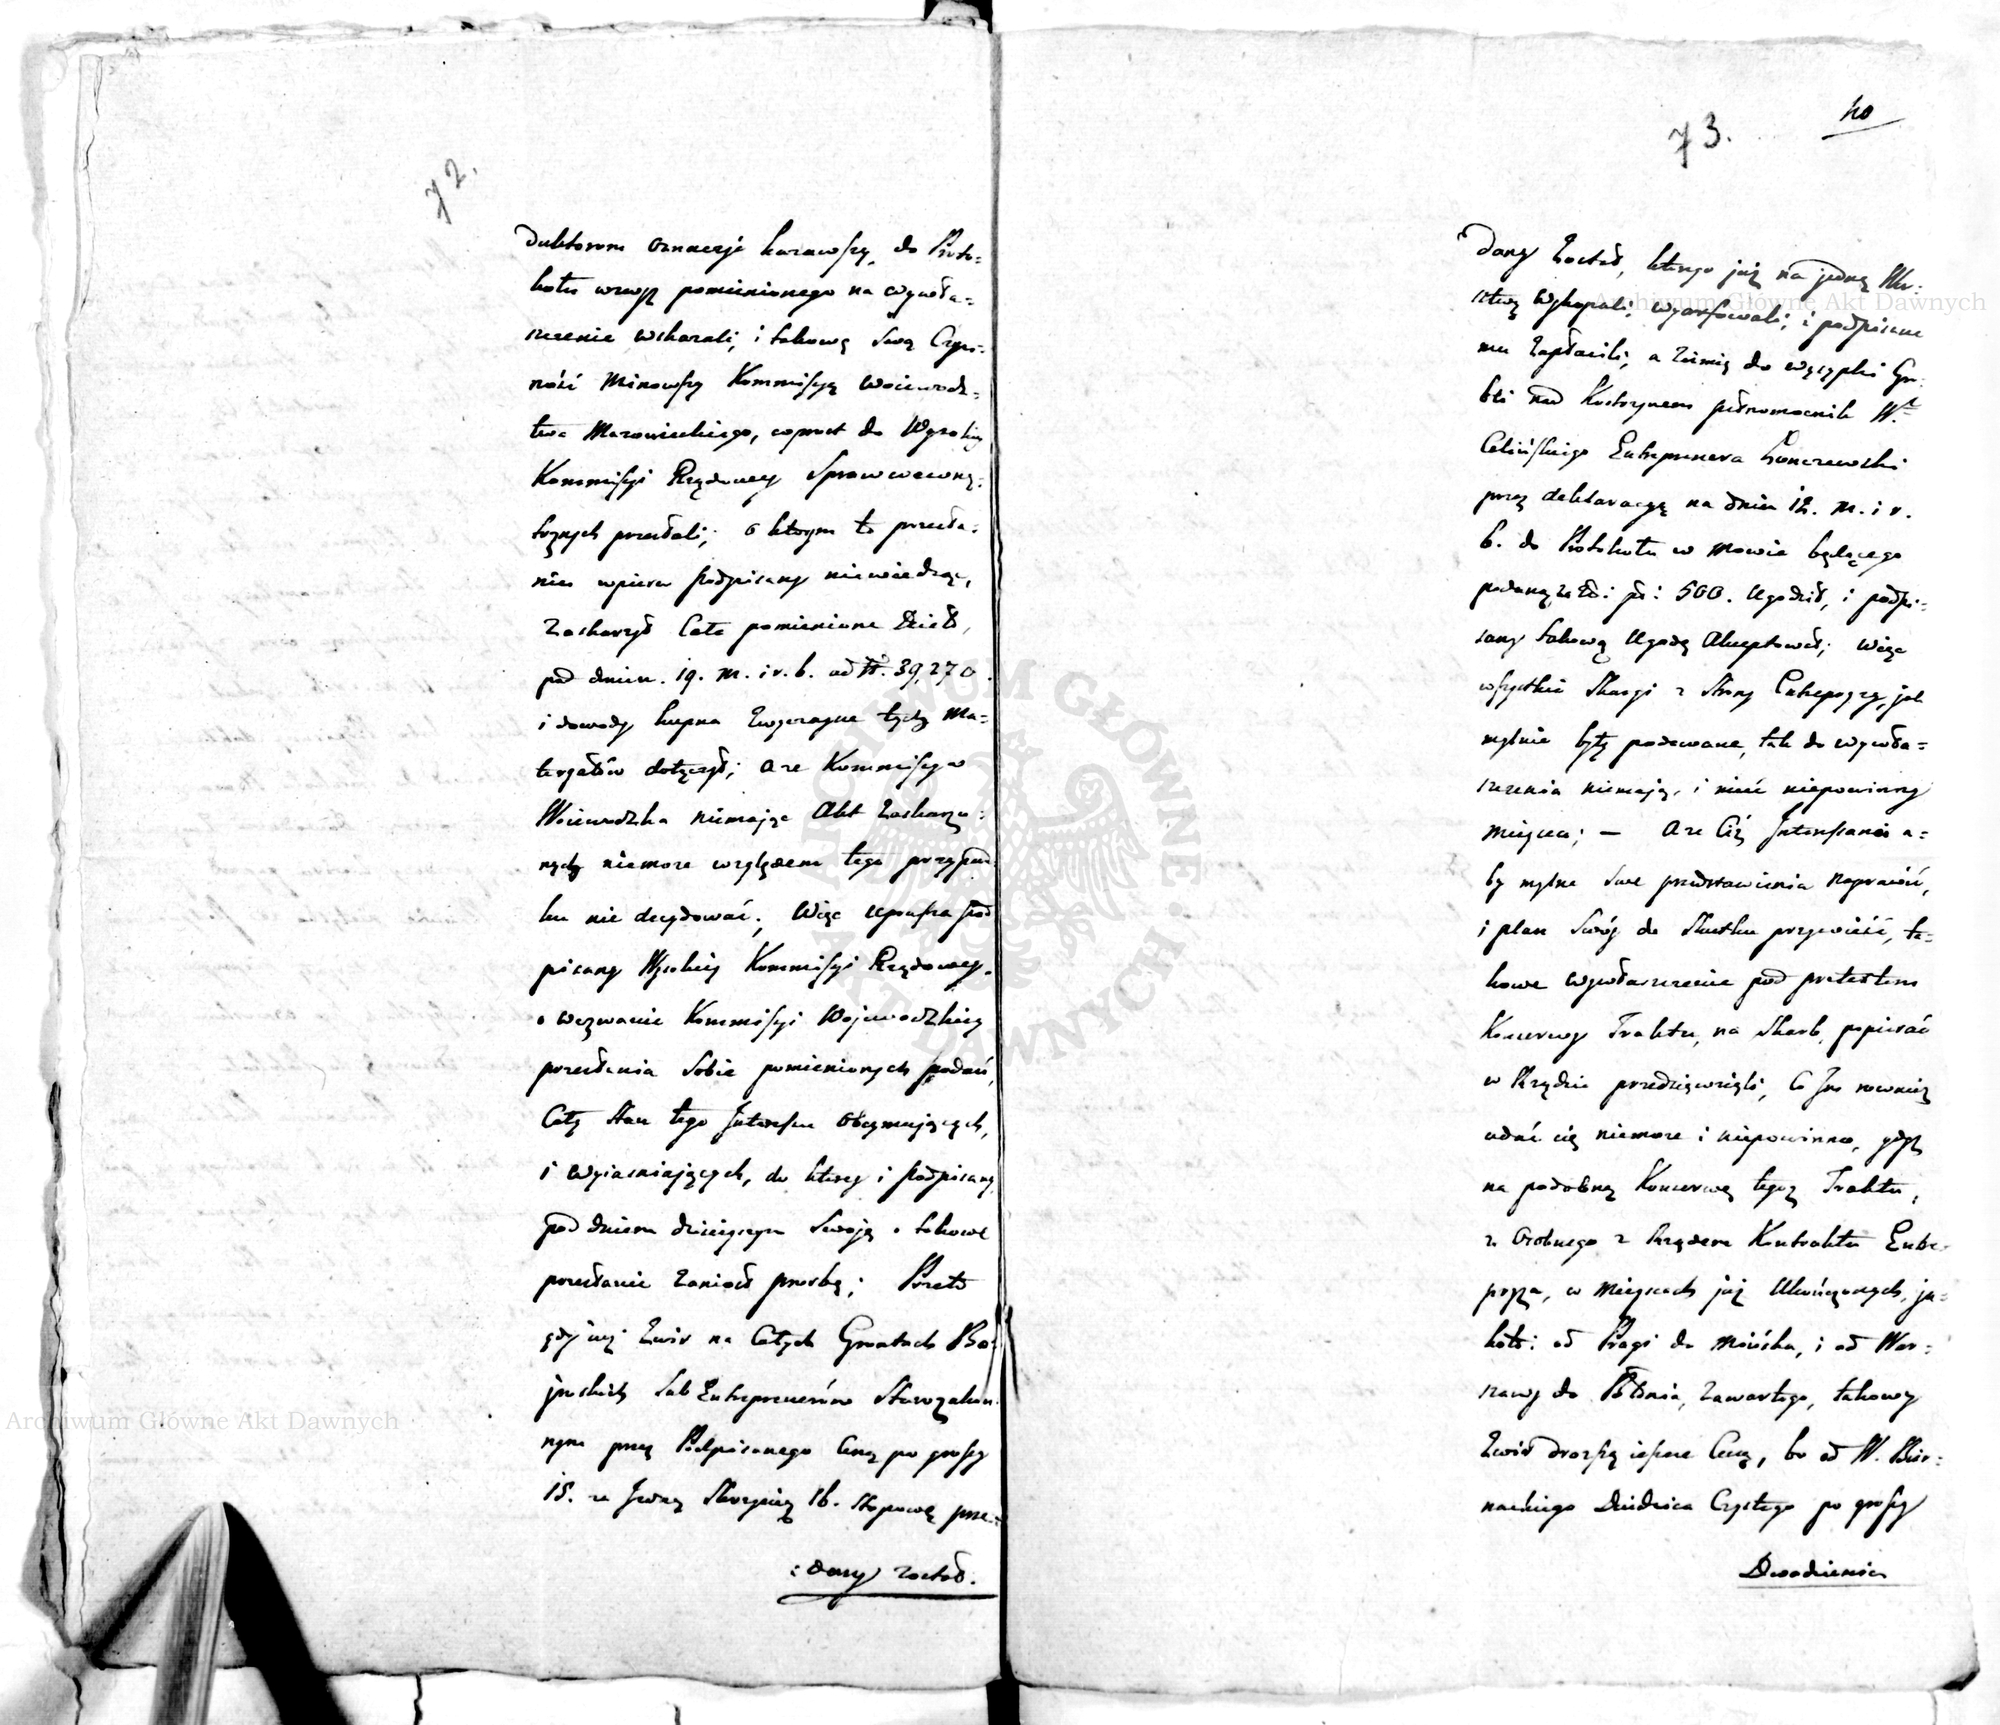 72.
duktorom oznaczyć kazawszy, do Proto=
kołu wzwyż pomienionego na wywła=
szczenie wskazali, i takową swą Czyn=
ność Minowszy Kommissyą Wojewodz=
twa Mazowieckiego, wprost do Wysokiey
Kommissyi Rządowey Spraw wewnę=
trznych przesłali; o którym to przesła=
niu wpierw podpisany niewiedząc,
Zaskarzył Całe pomienione Dzieło,
pod dniem 19. m. i r. b. ad N. 39,270.
i dowody kupna Zwyczayne tych Ma=
teryałów dołączył; a ze Kommissya
Wojewodzka niemaiąc Akt Zaskarzo=
nych niemoze względem tego przypad=
ku nic decydować; Więc uprasza pod
pisany Wysokiey Kommissyi Rządowey,
o wezwanie Kommissyi Wojewodzkiey
przesłania Sobie pomienionych podań,
Cały Stan tego Interesu Obeymuiących,
i wyiasniaiących, do którey i podpisany
pod dniem dzisieyszym Swoją o takowe
przesłanie Zaniósł prozbę; Przeto
gdy i ey Zwir na Całych Gruntach
Sub Entreprenerów Starozakon=
nym przez Podpisanego Cenę po groszy
15. za Jedną Skrzynię 16. Stopową prze=
:dany został.
Archiwum Główne Akt Dawnych
40
73.
dany Został, którego już na jedną Wer=
stwę Wykopali, wyarfowali, i podpisane
mu Zapłacili, a Ziemię do wysypki Gro=
bli nad Kostrzynem pełnomocnik W.
Celińskiego Entreprenera Łonczewski
przez deklaracyą na dniu 12. m. i r.
b. do Protokołu w mowie będącego
podaną, za Zł: p: 500. Ugodził, i podpi=
sany takową Ugodę Akceptował; Więc
wszystkie Skargi z Strony Entrepryzy, jak
mylnie były podawane, tak do wywła=
szczenia niemaią, i mieć niepowinny
mieysca; — A ze Ciż Interessanci a=
by mylne Swe przedstawienia naprawić,
i plan Swóy do Skutku przywieść, ta=
kowe wywłaszczenie pod pretextem
Konserwy Traktu, na Skarb, popierać
w Rządzie przedsięwzięli, Co Im rownież
udać się niemoze i niepowinno, gdyż
na podobną Konserwę tegoż Traktu,
z Osobnego z Rządem Kontraktu Entre=
pryza, w Mieyscach już Ukończonych, ja=
koto: od Pragi do Mińska, i od War=
szawy do Błonia, Zawartego, takowy
Zwir drozszą ieszcze Ceną, bo od W. Bier=
nackiego Dziedzica Czystego po groszy
Dwadzieścia
Archiwum Główne Akt Dawnych
ARCHIWUM GŁÓWNE AKT DAWNYCH